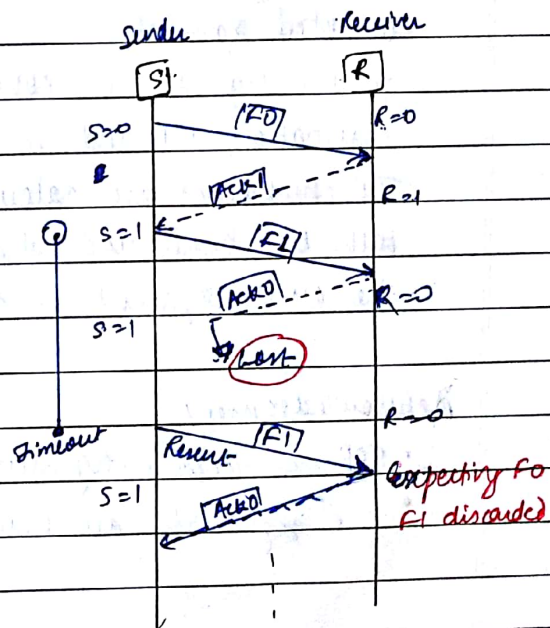 Sender Receiver
S R
S=0 F0 R=0
Ack1 R=1
S=1 F1
Ack0 R=0
S=1
Lost
R=0
Timeout Resent F1
expecting F0
S=1 Ack0 F1 discarded